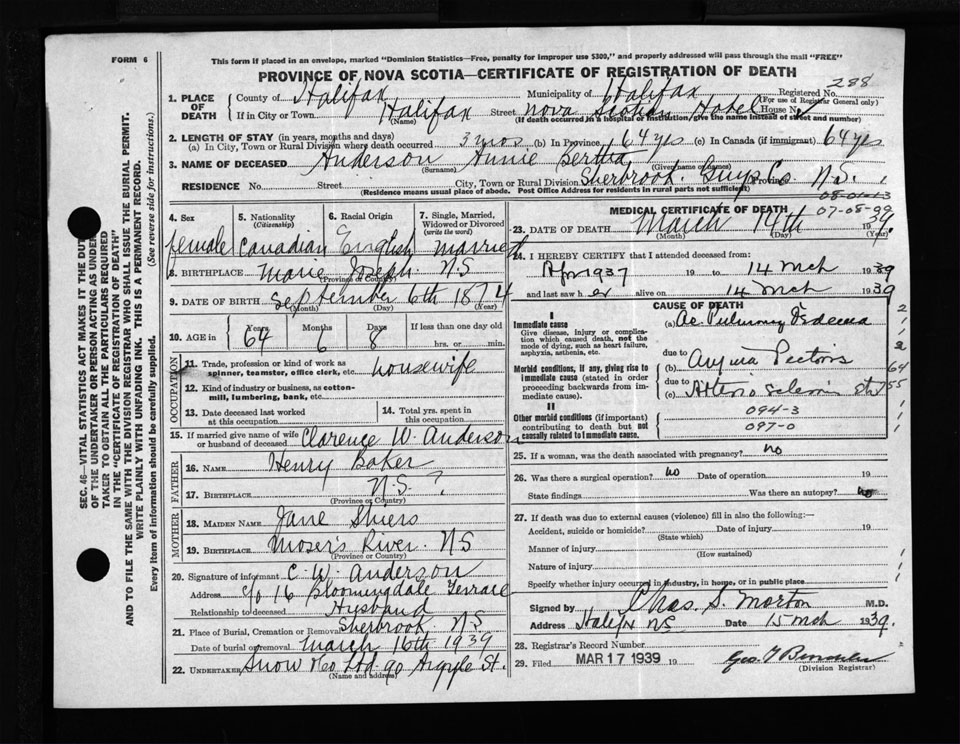 FORM 6
This form if placed in an envelope, marked "Dominion Statistics—Free, penalty for improper use $300," and properly addressed will pass through the mail "FREE"
PROVINCE OF NOVA SCOTIA—CERTIFICATE OF REGISTRATION OF DEATH
288
1. PLACE OF DEATH
County of Halifax Municipality of Halifax Registered No.
(For use of Registrar General only)
If in City or Town Halifax Street Nova Scotian Hotel House No.
(Name) (If death occurred in a hospital or institution, give the name instead of street and number)
2. LENGTH OF STAY (in years, months and days)
(a) In City, Town or Rural Division where death occurred 3 mos (b) In Province 64 yrs (c) In Canada (if immigrant) 64 yrs
3. NAME OF DECEASED Anderson Annie Bertha
(Surname) (Given or names)
RESIDENCE No. Street City, Town or Rural Division Sherbrook Guys Co. Province N.S.
(Residence means usual place of abode. Post Office Address for residents in rural parts not sufficient)
07-08-09
4. Sex
female
5. Nationality (Citizenship)
Canadian
6. Racial Origin
English
7. Single, Married, Widowed or Divorced (write the word)
Married
8. BIRTHPLACE Marie Joseph N.S
(Province or Country)
9. DATE OF BIRTH September 6th 1874
(Month) (Day) (Year)
10. AGE in Years Months Days If less than one day old
64 6 8 hrs. or min.
OCCUPATION
11. Trade, profession or kind of work as spinner, teamster, office clerk, etc. housewife
12. Kind of industry or business, as cotton-mill, lumbering, bank, etc.
13. Date deceased last worked at this occupation
14. Total yrs. spent in this occupation
15. If married give name of wife or husband of deceased Clarence W. Anderson
FATHER
16. NAME Henry Baker
17. BIRTHPLACE N.S. ?
(Province or Country)
MOTHER
18. MAIDEN NAME Jane Shiers
19. BIRTHPLACE Moser's River N.S
(Province or Country)
20. Signature of informant C. W. Anderson
Address c/o 16 Bloomingdale Terrace
Relationship to deceased Husband
21. Place of Burial, Cremation or Removal Sherbrook N.S
Date of burial or removal March 16th 1939
22. UNDERTAKER Snow & Co Ltd 90 Argyle St.
(Name and address)
MEDICAL CERTIFICATE OF DEATH
23. DATE OF DEATH March 14th 1939.
(Month) (Day)
24. I HEREBY CERTIFY that I attended deceased from:
Apr 1937 19 to 14 Mch 1939
and last saw her alive on 14 Mch 1939
CAUSE OF DEATH
I
Immediate cause
Give disease, injury or complication which caused death, not the mode of dying, such as heart failure, asphyxia, asthenia, etc.
(a) Ac. Pulmonary Oedema
due to
Morbid conditions, if any, giving rise to immediate cause (stated in order proceeding backwards from immediate).
(b) Angina Pectoris
due to
(c)
II
Other morbid conditions (if important) contributing to death but not causally related to immediate cause.
094-3
097-0
25. If a woman, was the death associated with pregnancy? no
26. Was there a surgical operation? no Date of operation 19
State findings Was there an autopsy? no
27. If death was due to external causes (violence) fill in also the following:—
Accident, suicide or homicide? Date of injury 19
(State which)
Manner of injury
(How sustained)
Nature of injury
Specify whether injury occurred in industry, in home, or in public place
Signed by Chas. S. Morton M.D.
Address Halifx NS Date 15 Mch 1939.
28. Registrar's Record Number
29. Filed MAR 17 1939 19
(Division Registrar)
SEC. 46—VITAL STATISTICS ACT MAKES IT THE DUTY
OF THE UNDERTAKER OR PERSON ACTING AS UNDERTAKER TO OBTAIN ALL THE PARTICULARS REQUIRED
IN THE "CERTIFICATE OF REGISTRATION OF DEATH"
AND TO FILE THE SAME WITH THE DIVISION REGISTRAR WHO SHALL ISSUE THE BURIAL PERMIT.
WRITE PLAINLY WITH UNFADING INK. THIS IS A PERMANENT RECORD.
Every item of information should be carefully supplied. (See reverse side for instructions.)